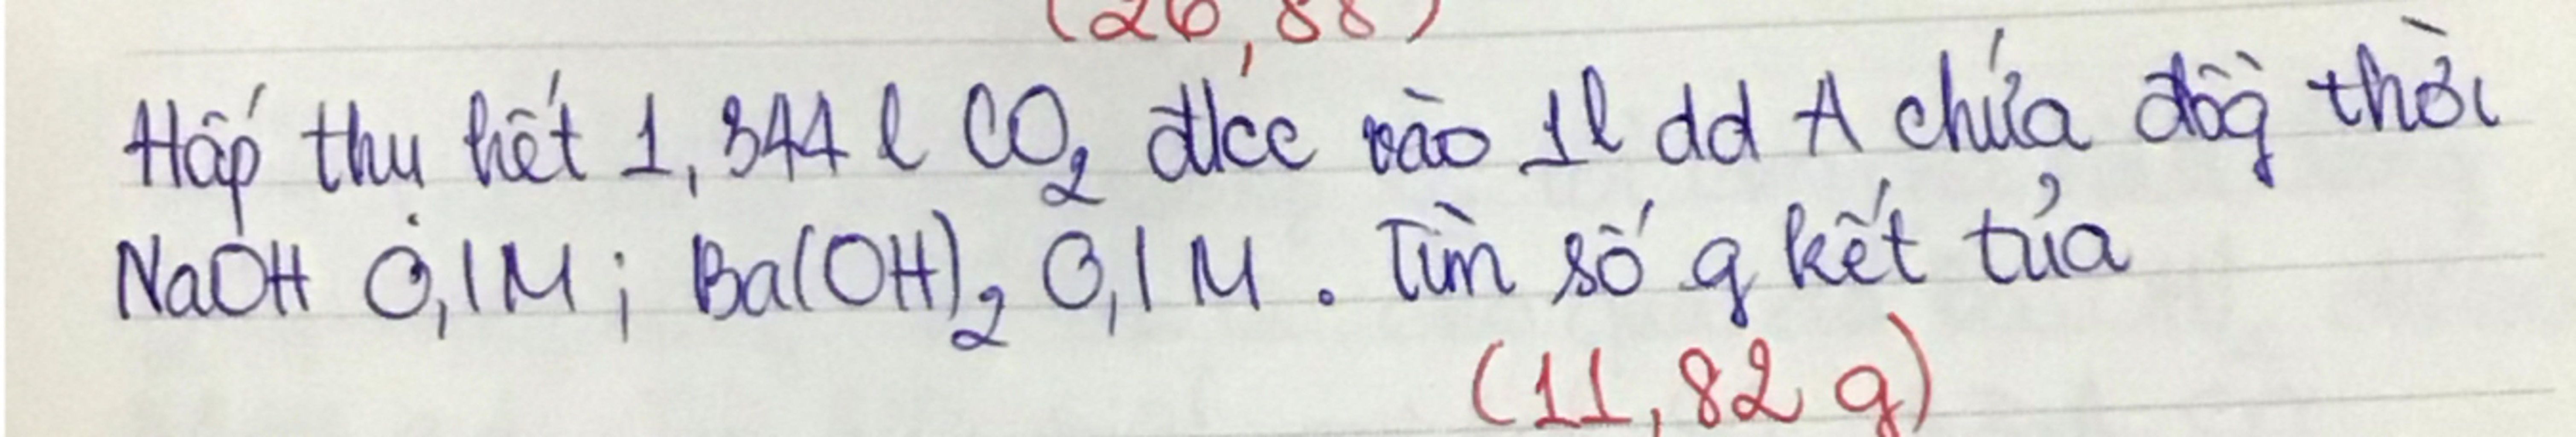 (26,88)
Hấp thu hết 1,344 l CO₂ đkc vào 1l dd A chứa đồg thời
NaOH 0,1M ; Ba(OH)₂ 0,1M. Tìm số g kết tủa
(11,82 g)